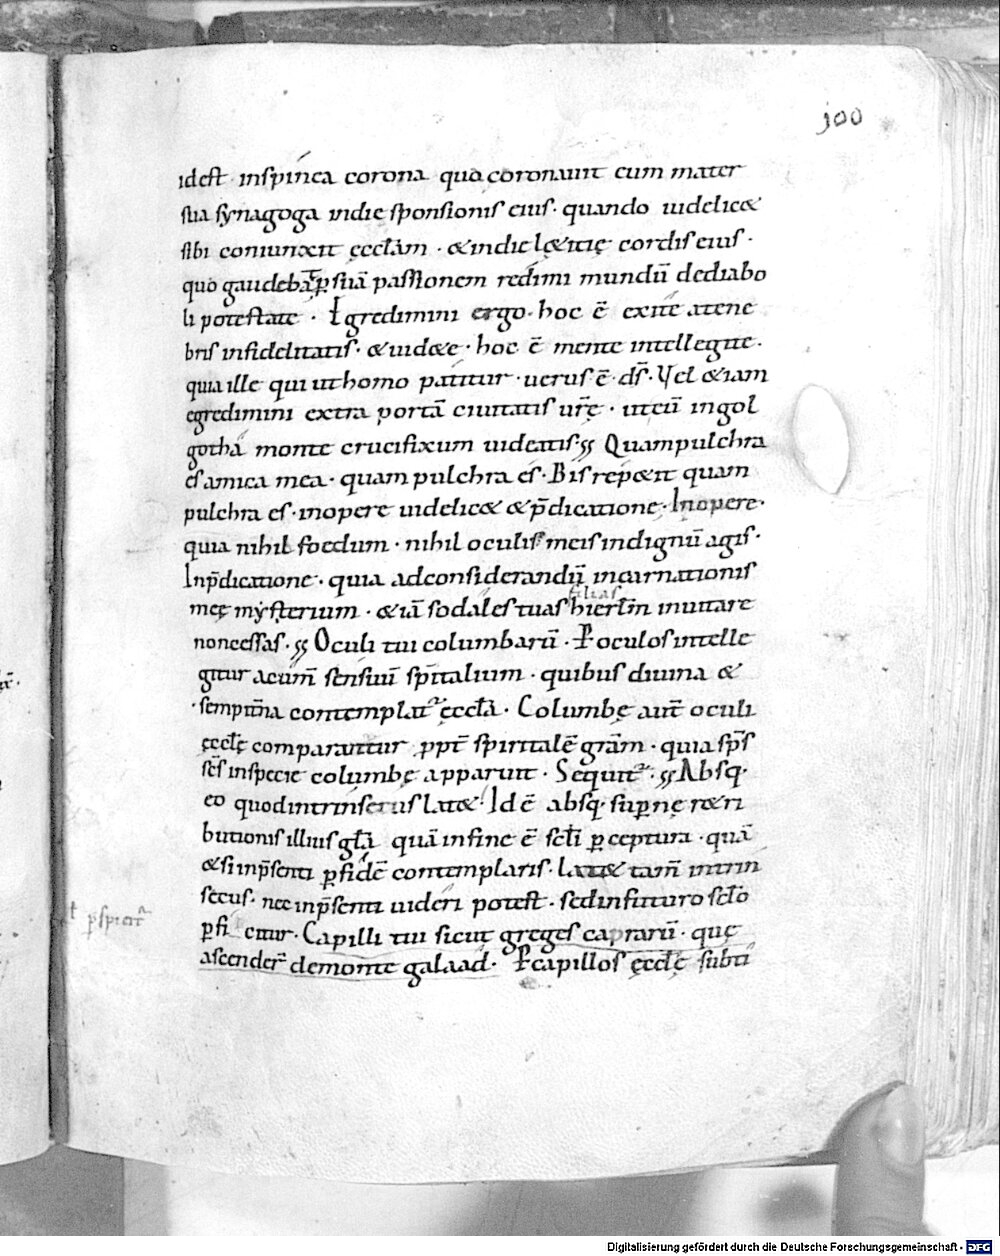 100
idest · inspinea corona qua coronauit eum mater
sua synagoga indie sponsionis eius · quando uidelic&
sibi coniunxit ęccl̄am · & indie l&itię cordis eius ·
quo gaudebat̄ p̱ suā passionem redimi mundū dediabo
li potestate · Egredimini ergo · hoc ē exite atene
bris infidelitatis · & uid&e · hoc ē mente intellegite ·
quia ille qui uthomo patitur · uerus ē · d̄s · Vel &iam
egredimini extra portā ciuitatis ur̄ę · ut eū ingol
gotha monte crucifixum uideatis · Quampulchra
es amica mea · quam pulchra es · Bis rep&it quam
pulchra es · inopere uidelic& & p̄dicatione · Inopere ·
quia nihil foedum · nihil oculis meis indignū agis ·
Inp̄dicatione · quia adconsiderandū incarnationis
filias
meę mysterium · & iā sodales tuas hierl̄m inuitare
noncessas · Oculi tui columbarū · P̱ oculos intelle
gitur acum̄ sensuū sp̄italium · quibus diuina &
sempit̄na contemplat᷑ ęccl̄a · Columbę aut̄ oculi
ęccl̄ę comparantur ꝓpt̄ spiritalē grām · quia sp̄s
sc̄s inspecie columbę apparuit · Sequit᷑ · Absq·
eo quodintrinsecus lat& · Id ē absq· supernę r&ri
butionis illius gl̄a quā infine ē sc̄li p̱ceptura · quā
& si inp̄senti p̱ fidē contemplaris · lat& tam̄ intrin
secus · nec inp̄senti uideri potest · sed infuturo scl̄o
ł p̱spicit᷑
p̱fi citur · Capilli tui sicut greges caprarū · quę
ascender̄ demonte galaad · P̱ capillos ęccl̄ę subti
Digitalisierung gefördert durch die Deutsche Forschungsgemeinschaft - DFG